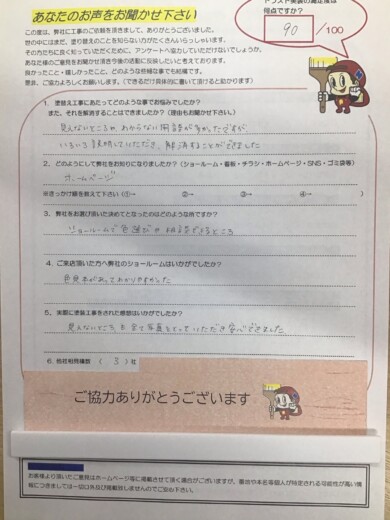 あなたのお声をお聞かせ下さい
トラスト美装の満足度は
何点ですか?
90 /100
この度は、弊社に工事のご依頼を頂きまして、ありがとうございました。
世の中にはまだ、塗り替えのことを知らない方がたくさんいらっしゃいます。
その方たちに良く知っていただくために、アンケートへ協力していただけないでしょうか。
あなた様のご意見をお聞かせ頂き今後の活動に反映したいと考えております。
良かったこと・嬉しかったこと、どのような些細な事でも結構です。
是非、ご協力よろしくお願いします。(できるだけ具体的に書いて頂けると助かります)
1、塗替え工事にあたってどのような事でお悩みでしたか?
また、それを解消することはできましたか?(理由もお聞かせ下さい。)
見えないところや、わからない用語が多かったですが、
いろいろ説明していただき、解消することができました
2、どのようにして弊社をお知りになりましたか?(ショールーム・看板・チラシ・ホームページ・SNS・ゴミ袋等)
ホームページ
※きっかけ順を教えて下さい(①→ ②→ ③→ ④→ )
3、弊社をお選び頂いた決めてとなったのはどのような所ですか?
ショールームで色選びや相談できるところ
4、ご来店頂いた方へ弊社のショールームはいかがでしたか?
色見本があってわかりやすかった
5、実際に塗装工事をされた感想はいかがでしたか?
見えないところも全て写真をとっていただき安心できました
6、他社相見積数 ( 3 )社
ご協力ありがとうございます
お客様より頂いたご意見はホームページ等に掲載させて頂く場合がございますが、番地や本名等個人が特定される可能性が高い情
報につきましては一切口外及び掲載致しませんのでご安心下さい。